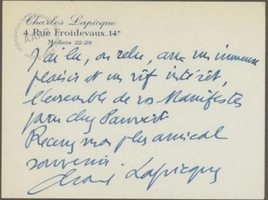 Charles Lapicque
4 Rue Froidevaux. 14e
Médicis 22-29
J'ai lu, ou relu, avec un immense
plaisir et un vif intérêt,
l'ensemble de vos Manifestes
parus chez Pauvert
Recevez mon plus amical
souvenir
Charles Lapicque